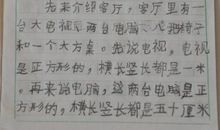 先来介绍客厅,客厅里有一
台大电视、两台电脑、八把椅子
和一个大方桌。先说电视,电视
是正方形的,横长竖长都是一米
。再来说电脑,这两台电脑是正
方形的,横长竖长都是五十厘米